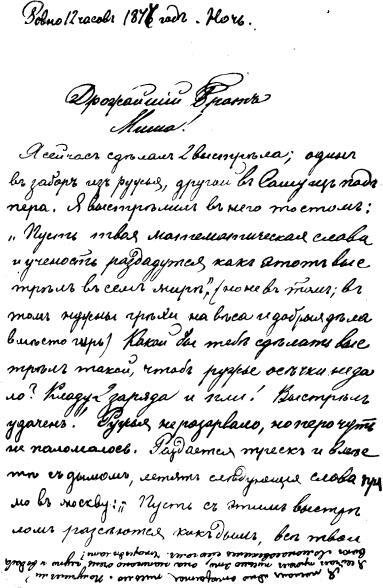 Ровно 12 часовъ 1877 годъ. Ночь.
Дрожайшій Братъ
Миша!
Я сейчасъ сдѣлалъ 2 выстрѣла; одинъ
въ заборъ изъ ружья, другой въ Сашу изъ под
пера. Я выстрѣлилъ въ него тостомъ:
„Пусть твоя математическая слава
и ученость раздадутся какъ этотъ выс
трѣлъ въ семъ мирѣ", (но не въ томъ; въ
томъ нужны грѣхи на вѣса и добрыя дѣла
вмѣсто гирь) Какой бы тебѣ сдѣлать выс
трѣлъ такой, чтобъ ружье осѣчки не да
ло? Кладу 2 заряда и пли! Выстрѣлъ
удаченъ! Ружья не розорвало, но перо чуть
не поломалось. Раздается трескъ и вмѣс
тѣ съ дымомъ, летятъ слѣдующія слова пря
мо въ москву: „Пусть съ этимъ выстрѣ
ломъ разсѣются какъ дымъ, всѣ твои